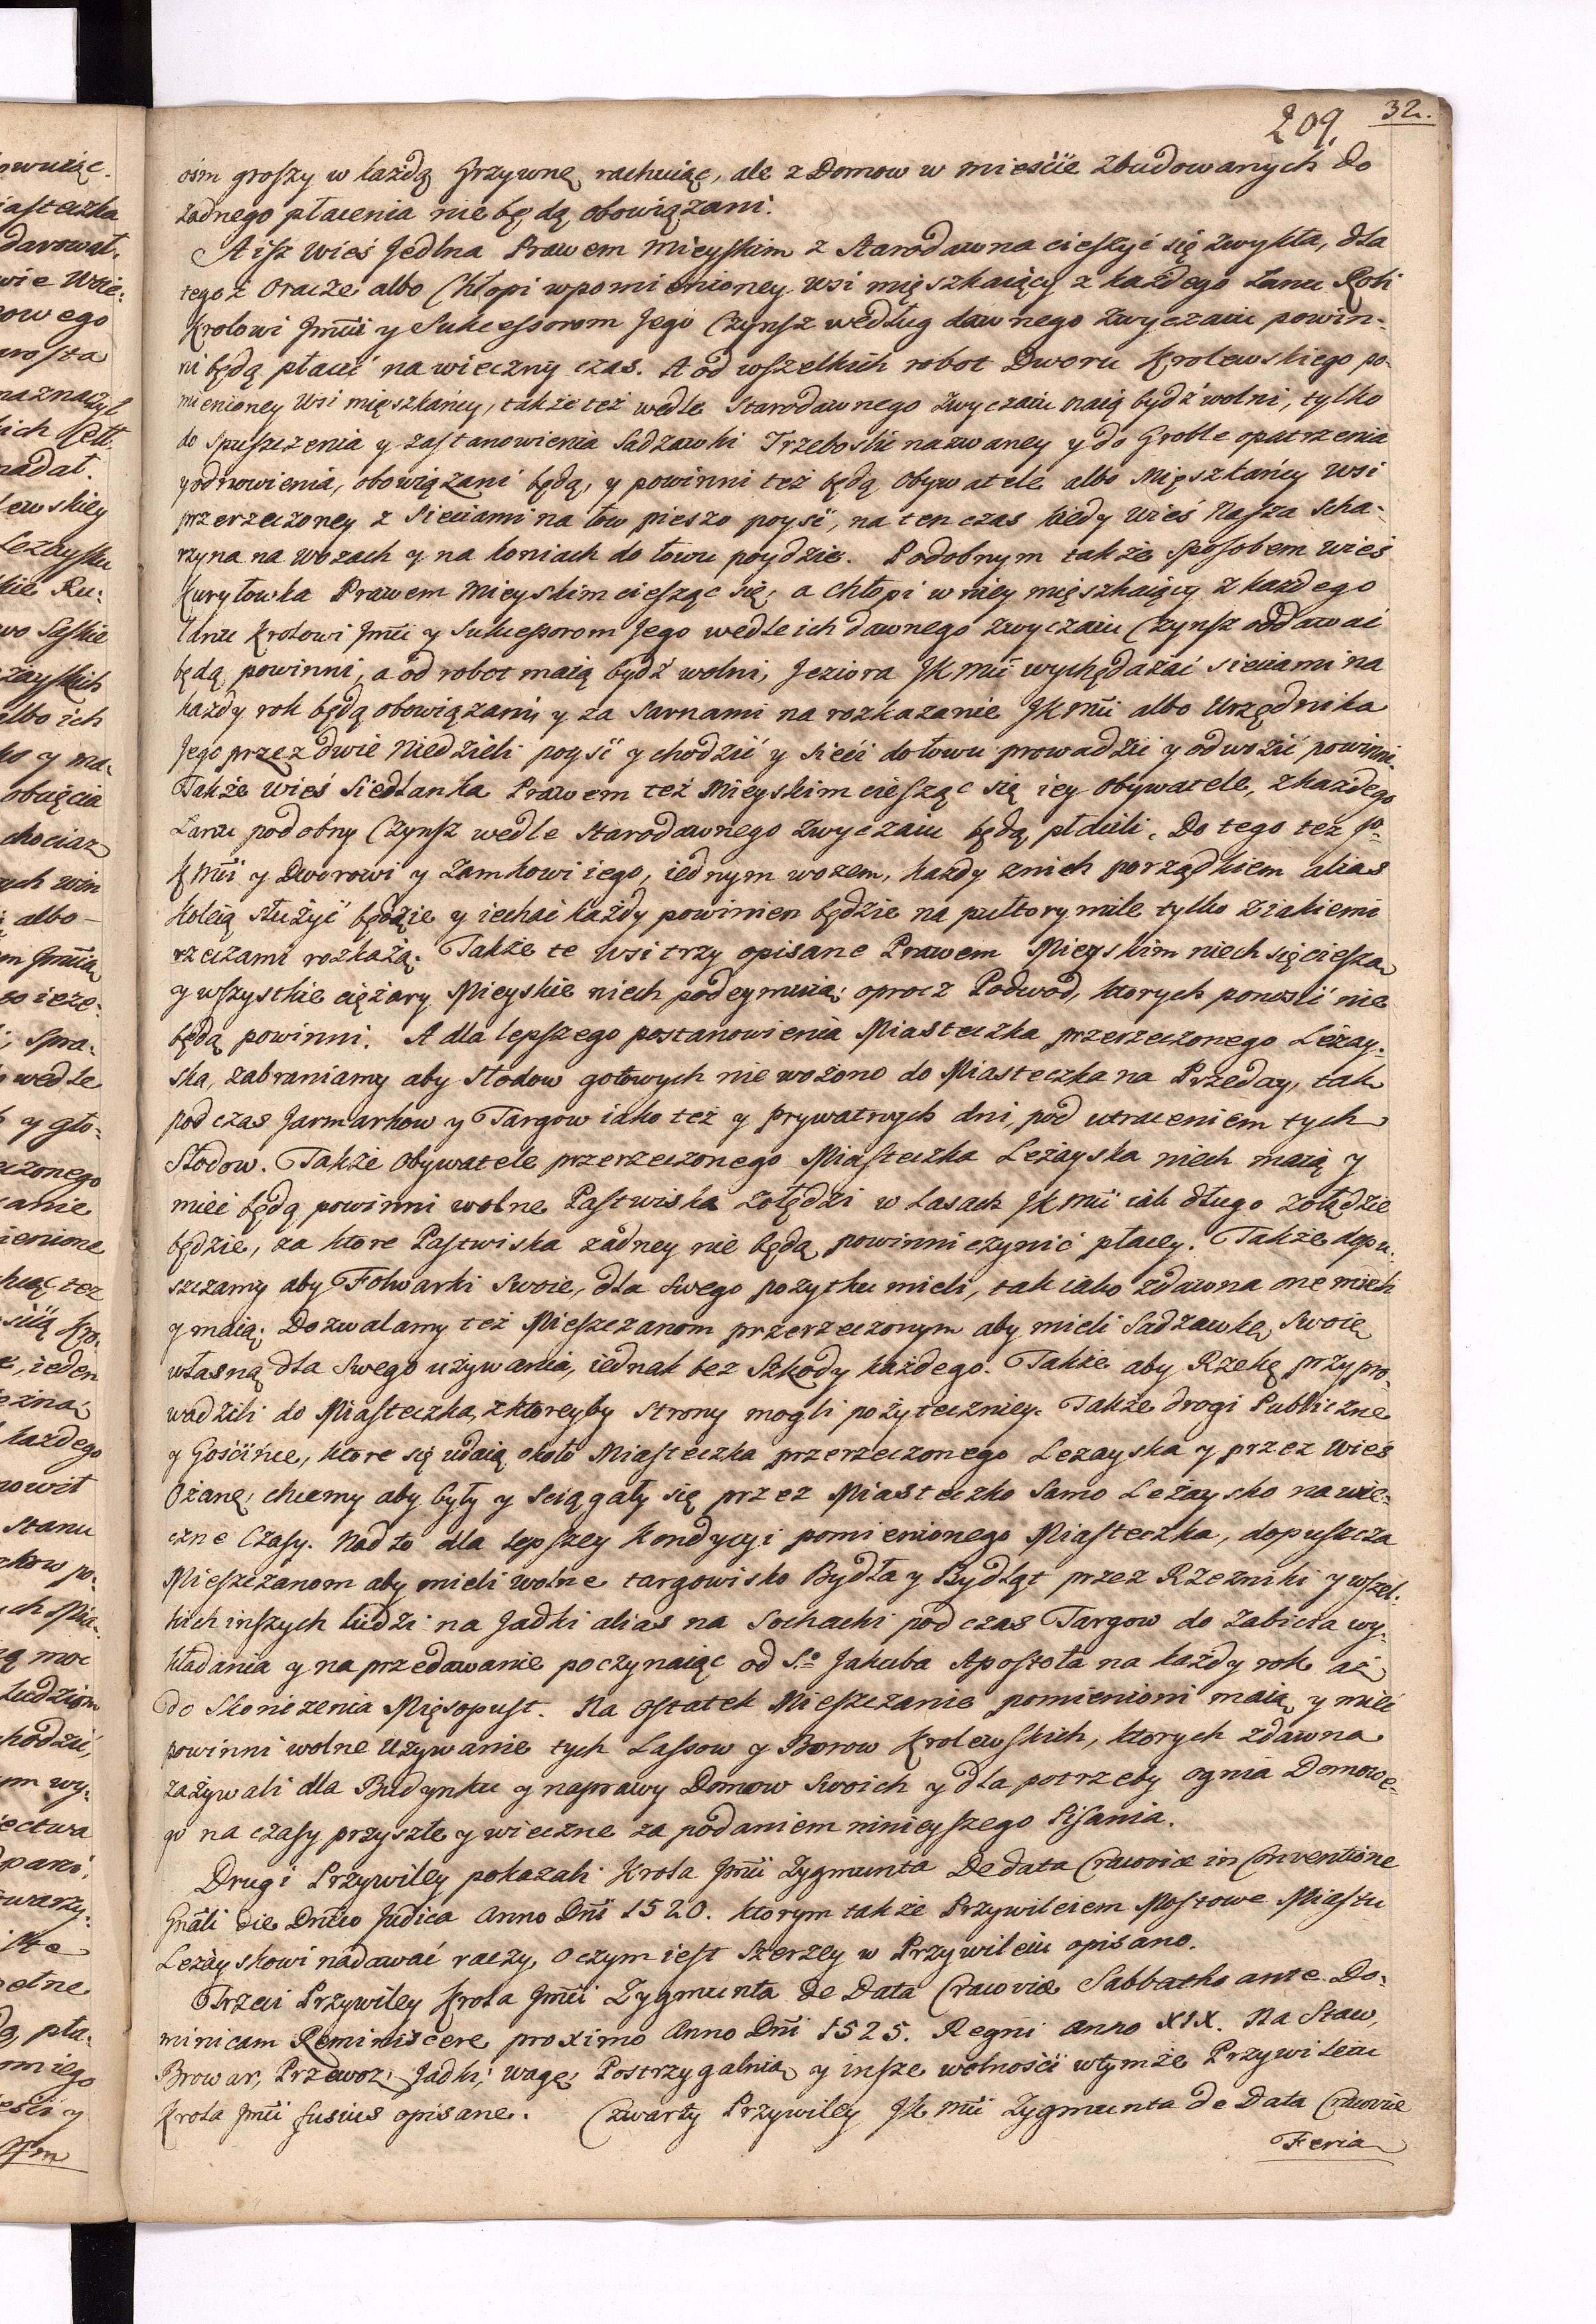 209. 32.
ośm groszy w każdą Grzywnę rachuiąc, ale z Domow w mieście zbudowanych do
żadnego płacenia nie będą obowiązani.
A isz wieś Jedlna Prawem Mieyskim z Starodawna cieszyć się zwykła, dla
tego ż Oracze albo Chłopi wpomienioney wsi mięszkaiący z każdego Łanu Roli
Krolowi Jmći y Sukcessorom Jego Czynsz według dawnego zwyczaiu powin-
ni będą płacić na wieczny czas. A od wszelkich robot Dworu Krolewskiego po-
mienioney Wsi mięszkańcy, także też wedle Starodawnego zwyczaiu maią bydź wolni, tylko
do spuszczenia y zastanowienia Sadzawki Trzeboski nazwaney y do Groble opatrzenia
y odnowienia, obowiązani będą, y powinni też będą Obywatele albo Mięszkańcy Wsi
przerzeczoney z Sieciami na łow pieszo poyść, na ten czas kiedy Wieś Nasza Scha-
rzyna na wozach y na koniach do łowu poydzie. Podobnym także sposobem wieś
Kuryłowka Prawem Mieyskim ciesząc się, a Chłopi w niey mięszkaiący z każdego
Łanu Krolowi Jmći y Sukcessorom Jego wedle ich dawnego zwyczaiu Czynsz oddawać
będą powinni, a od robot maią bydź wolni, Jeziora JKMći wychędażać sieciami na
każdy rok będą obowiązani, y za Sarnami na rozkazanie JKMći albo Urzędnika
Jego przez dwie Niedzieli poyść y chodzić y sieći do łowu prowadzić y odwozić powinni.
Także Wieś Siedlanka Prawem też Mieyskim ciesząc się iey Obywatele, z każdego
Łanu podobny Czynsz wedle Starodawnego zwyczaiu będą płacili. Do tego też Jo-
KMći y Dworowi y Zamkowi iego, iednym wozem, każdy z nich porządkiem alias
Koleią służyć będzie y iechać każdy powinien będzie na pułtory mile tylko z iakiemi
rzeczami rozkażą. Także te Wsi trzy opisane Prawem Mieyskim niech się cieszą
y wszystkie ciężary Mieyskie niech podeymuią, oprocz Podwod, ktorych ponosić nie
będą powinni. A dla lepszego postanowienia Miasteczka przerzeczonego Leżay-
ska, zabraniamy aby Słodow gotowych nie wożono do Miasteczka na Przeday, tak
pod czas Jarmarkow y Targow iako też y prywatnych dni, pod utraceniem tych
Słodow. Także Obywatele przerzeczonego Miasteczka Leżayska niech maią y
mieć będą powinni wolne Pastwiska żołędzi w Lasach JKMći iak długo żołądzie
będzie, za ktore Pastwiska żadney nie będą powinni czynić płacy. Także dopu-
szczamy aby Folwarki Swoie, dla Swego pożytku mieli, tak iako zdawna one mieli
y maią; Dozwalamy też Mieszczanom przerzeczonym aby mieli Sadzawkę Swoię
własną dla Swego używania, iednak bez Szkody każdego. Także aby Rzekę przypro-
wadzili do Miasteczka, z ktoreyby Strony mogli pożyteczniey. Także drogi Publiczne
y Gościńce, ktore się udaią około Miasteczka przerzeczonego Leżayska y przez Wieś
Ożanę, chcemy aby były y sciągały się przez Miasteczko Samo Leżaysko na wie-
czne Czasy. Nad to dla lepszey Kondycyi pomienionego Miasteczka, dopuszcza
Mieszczanom aby mieli wolne targowisko Bydła y Bydląt przez Rzezniki y wszel-
kich inszych ludzi na Jadki alias na Sochacki pod czas Targow do zabicia wy-
kładania y na przedawanie poczynaiąc od S.º Jakuba Apostoła na każdy rok aż
do Skończenia Mięsopust. Na Ostatek Mieszczanie pomienioni maią y mieć
powinni wolne używanie tych Lassow y Borow Krolewskich, ktorych zdawna
zażywali dla Budynku y naprawy Domow Swoich y dla potrzeby ognia Domowe-
go na czasy przyszłe y wieczne za podaniem ninieyszego Pisania.
Drugi Przywiley pokazali Krola Jmći Zygmunta De data Cracoviæ in Conventione
Gnāli die Dnico Judica Anno Dni 1520. ktorym także Przywileiem Mostowe Miastu
Leżayskowi nadawać raczy, o czym iest Szerzey w Przywileiu opisano.
Trzeci Przywiley Krola Jmći Zygmunta de Data Cracoviæ Sabbatho ante Do-
minicam Reminiscere proximo Anno Dni 1525. Regni anno XIX. Na Staw,
Browar, Przewoz, Jadki, wagę, Postrzygalnią y insze wolności w tymże Przywileiu
Krola Jmći fusius opisane. Czwarty Przywiley JKMći Zygmunta de Data Cracoviæ
Feria